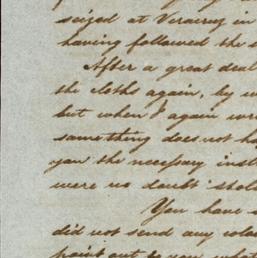 seized at Veracruz in
having followed the
After a great deal
the cloths again, by
but when I again
something does not
you the necessary inst
were no doubt stol
You have
did not send any
point out to you what